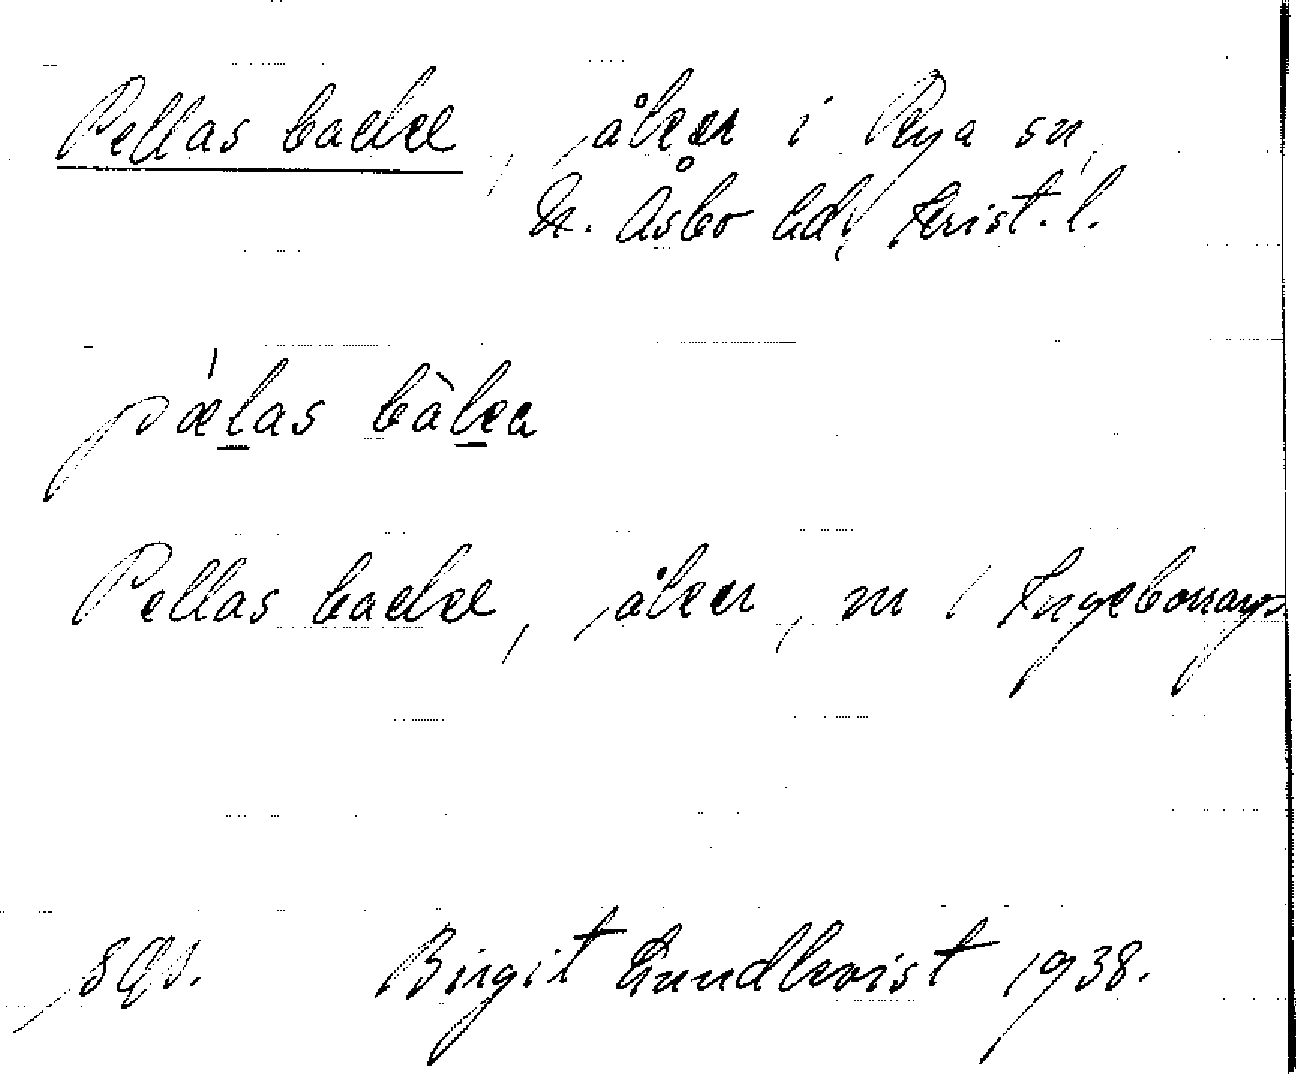 Pellas backe, åker i Rya sn,
N. Åsbo hd, Krist. l.
pǽl̲as bàk̲a
Pellas backe, åker, nr 1 Ingeborrarps
sgs. Birgit Lundkvist 1938.